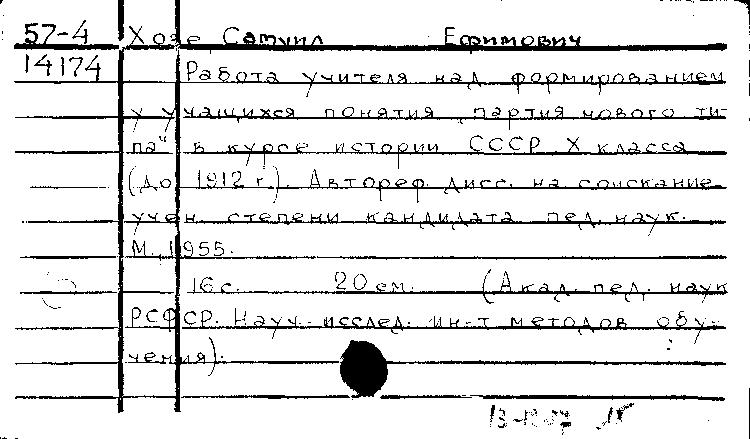 57-4 Хозе Самуил Ефимович
14174 Работа учителя над формированием
у учащихся понятия „партия нового ти-
па“ в курсе истории СССР X класса
(до 1912 г.). Автореф. дисс. на соискание
учен. степени кандидата пед. наук.
М., 1955.
16 с. 20 см. (Акад. пед. наук
РСФСР. Науч.-исслед. ин-т методов обу-
чения).